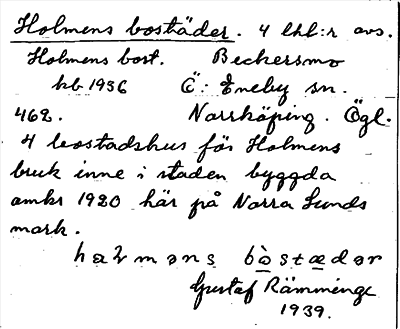 Holmens bostäder. 4 lhl:r avs.
Holmens bost. Beckersmo
kb 1936 Ö: Eneby sn.
462. Norrköping. Ögl.
4 bostadshus för Holmens
bruk inne i staden byggda
omkr 1920 här på Norra Sunds
mark.
bòstædər
Gustaf Rämminge
1939.